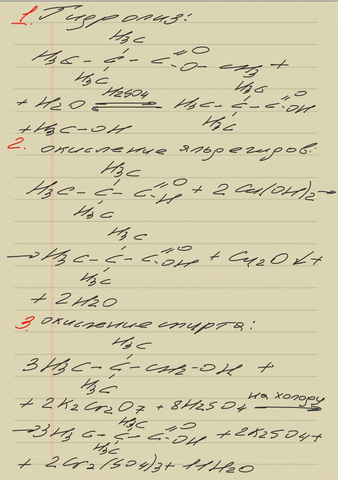 1. Гидролиз:
H3C
H3C - C - C =O -O - CH3 +
H3C
+ H2O H2SO4 H3C - C - C =O OH
H3C
H3C
+ H3C - OH
2. окисление альдегидов:
H3C
H3C - C - C =O H + 2 Cu(OH)2 →
H3C
H3C
→ H3C - C - C =O OH + Cu2O ↓ +
H3C
+ 2H2O
3 окисление спирта:
H3C
3H3C - C - CH2 - OH +
H3C
+ 2K2Cr2O7 + 8H2SO4 на холоду →
H3C
→ 3H3C - C - C =O OH + 2K2SO4 +
H3C
+ 2Cr2(SO4)3 + 11H2O